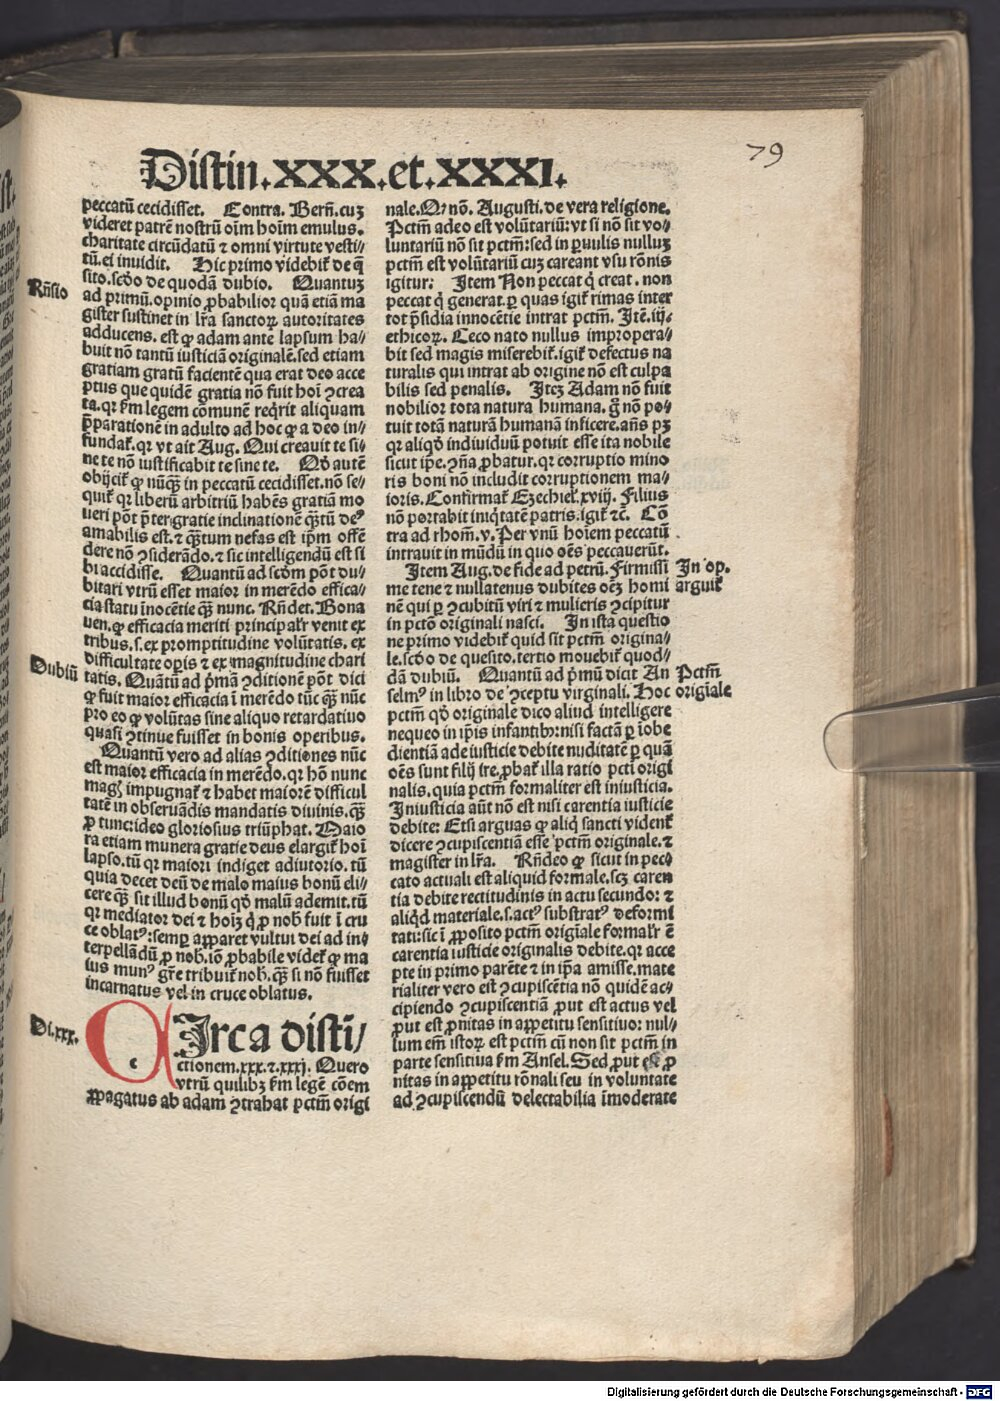 79
Distin.XXX.et.XXXI.
peccatū cecidisset. Contra. Berñ. cuʒ
videret patrē nostrū oīm hoīm emulus.
charitate circūdatū ⁊ omni virtute vesti//
tū. ei inuidit. Hic primo videbiť de q̄
sito. scd̄o de quodā dubio. Quantuʒ
Rñsio
ad primū. opinio ꝓbabilior quā etiā ma
gister sustinet in lr̄a sanctoꝝ autoritates
adducens. est ꝙ adam ante lapsum ha/
buit nō tantū iusticiā originalē. sed etiam
gratiam gratū facientē qua erat deo acce
ptus que quidē gratia nō fuit hoī ꝯcrea
ta. qr fm legem cōmunē reqͥrit aliquam
p̄parationē in adulto ad hoc ꝙ a deo in/
fundať. qr vt ait Aug. Qui creauit te si/
ne te nō iustificabit te sine te. Qd̓ autē
obijciť ꝙ nūq̄ʒ in peccatū cecidisset. nō se/
quiť qr liberū arbitriū habēs gratiā mo
ueri pōt p̄ter gratie inclinationē q̄ʒtū deꝰ
amabilis est. ⁊ q̄ʒtum nefas est ip̄m offē
dere nō ꝯsiderādo. ⁊ sic intelligendū est si
bi accidisse. Quantū ad scd̄m pōt du/
bitari vtrū esset maior in merēdo effica/
cia statu īnocētie q̄ʒ nunc. Rñdet. Bona
uen. ꝙ efficacia meriti principalr̄ venit ex
tribus. s. ex promptitudine volūtatis. ex
difficultate opis ⁊ ex magnitudine chari
Dubiū
tatis. Quātū ad p̄mā ꝯditionē pōt dici
ꝙ fuit maior efficacia ī merēdo tūc q̄ʒ nūc
pro eo ꝙ volūtas sine aliquo retardatiuo
quasi ꝯtinue fuisset in bonis operibus.
Quantū vero ad alias ꝯditiones nūc
est maior efficacia in merēdo. qr hō nunc
magꝭ impugnať ⁊ habet maiorē difficul
tatē in obseruādis mandatis diuinis. q̄ʒ
ꝓ tunc: ideo gloriosius triūphat. Maio
ra etiam munera gratie deus elargiť hoī
lapso. tū qr maiori indiget adiutorio. tū
quia decet deū de malo maius bonū eli/
cere q̄ʒ sit illud bonū qd̓ malū ademit. tū
qr mediator dei ⁊ hoīʒ qͥ ꝓ nob̄ fuit ī cru
ce oblatꝰ: semꝑ apparet vultui dei ad in/
terpellādū ꝓ nob̄. iō ꝓbabile videť ꝙ ma
ius munꝰ gr̄e tribuiť nob̄. q̄ʒ si nō fuisset
incarnatus vel in cruce oblatus.
Di.xxx.
c
Irca disti̅/
ctionem. xxx. ⁊. xxxj. Quero
vtrū quilibʒ fm legē cōem
ꝓpagatus ab adam ꝯtrahat pctm̄ origi
nale. Qꝛ nō. Augusti. de vera religione.
Pctm̄ adeo est volūtariū: vt si nō sit vo/
luntariū nō sit pctm̄: sed in ꝑuulis nulluʒ
pctm̄ est volūtariū cuʒ careant vsu rōnis
igitur: Item Non peccat qͥ creat. non
peccat qͥ generat. ꝑ quas igiť rimas inter
tot p̄sidia innocētie intrat pctm̄. Itē. iij.
ethicoꝝ. Ceco nato nullus impropera/
bit sed magis miserebiť. igiť defectus na
turalis qui intrat ab origine nō est culpa
bilis sed penalis. Iteʒ Adam nō fuit
nobilior tota natura humana. gͦ nō po/
tuit totā naturā humanā inficere. añs pʒ
qr aliqd̓ indiuiduū potuit esse ita nobile
sicut ip̄e. ꝯña ꝓbatur. qr corruptio mino
ris boni nō includit corruptionem ma/
ioris. Confirmať Ezechieľ. xviij. Filius
nō portabit iniqͥtatē patris. igiť ⁊c̄. Cō
tra ad rhom̄. v. Per vnū hoīem peccatū
intrauit in mūdū in quo oēs peccauerūt.
Item Aug. de fide ad petrū. Firmissi
In op.
me tene ⁊ nullatenus dubites oēʒ homi
arguiť
nē qui ꝑ ꝯcubitū viri ⁊ mulieris ꝯcipitur
in pctō originali nasci. In ista questio
ne primo videbiť quid sit pctm̄ origina/
le. scd̄o de quesito. tertio mouebiť quod/
dā dubiū. Quantū ad p̄mū dicit An
Pctm̄
selmꝰ in libro de ꝯceptu virginali. Hoc
origīale
pctm̄ qd̓ originale dico aliud intelligere
nequeo in ip̄is infantibꝰ: nisi factā ꝑ īobe
dientiā ade iusticie debite nuditatē ꝑ quā
oēs sunt filij ire. ꝓbať illa ratio pcti origi
nalis. quia pctm̄ formaliter est iniusticia.
Iniusticia aūt nō est nisi carentia iusticie
debite: Etsi arguas ꝙ aliqͥ sancti videnť
dicere ꝯcupiscentiā esse pctm̄ originale. ⁊
magister in lr̄a. Rñdeo ꝙ sicut in pec/
cato actuali est aliquid formale. scʒ caren
tia debite rectitudinis in actu secundo: ⁊
aliqͥd materiale. s. actꝰ substratꝰ deformi
tati: sic ī ꝓposito pctm̄ origīale formalr̄ ē
carentia iusticie originalis debite. qr acce
pte in primo parēte ⁊ in ip̄a amisse. mate
rialiter vero est ꝯcupiscētia nō quidē ac/
cipiendo ꝯcupiscentiā ꝓut est actus vel
ꝓut est ꝓnitas in appetitu sensitiuo: nul/
lum em̄ istoꝝ est pctm̄ cū non sit pctm̄ in
parte sensitiua fm Ansel. Sed ꝓut est ꝓ
nitas in appetitu rōnali seu in voluntate
ad ꝯcupiscendū delectabilia īmoderate
Digitalisierung gefördert durch die Deutsche Forschungsgemeinschaft - DFG